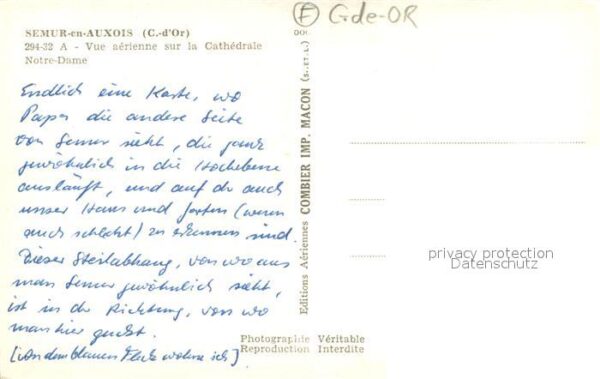 F Gde-OR
SEMUR-en-AUXOIS (C.-d'Or)
294-32 A - Vue aérienne sur la Cathédrale
Notre-Dame
Endlich eine Karte, wo
Papa die andere Seite
von Semur sieht, die ganz
gewöhnlich in die Hochebene
ausläuft, und auf der auch
unser Haus und Garten (wenn
auch schlecht) zu erkennen sind.
Dieser Steilabhang, von wo aus
man Semur gewöhnlich sieht,
ist in der Richtung, von wo
man hier guckt.
[von dem blauen Fleck wohne ich]
Editions Aériennes COMBIER IMP. MACON (S.-ET-L.)
privacy protection
Datenschutz
Photographie Véritable
Reproduction Interdite